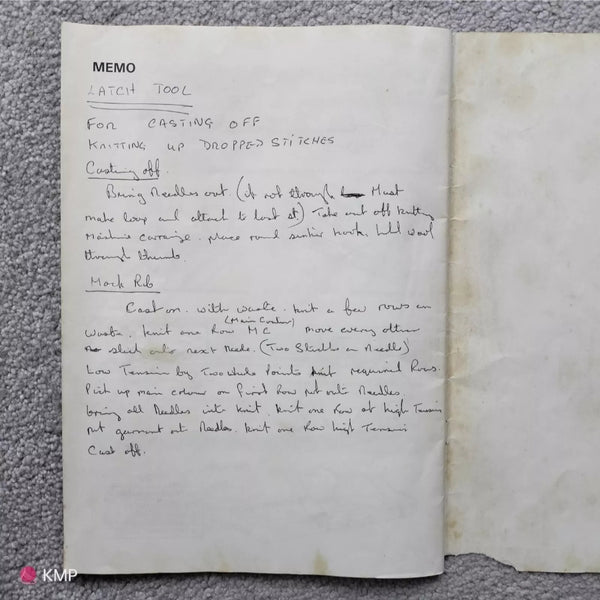 MEMO
LATCH TOOL
FOR CASTING OFF
KNITTING UP DROPPED STITCHES
Casting off.
Bring Needles out (if not through Must
make loop and attach to last st) Take out off knitting
Machine carraige. place round sinker hooks. hold wool
through thumb.
Mock Rib
Cast on. with waste. knit a few rows in
(Main Colour)
waste. knit one Row MC move every other
stitch onto next Needle. (Two Stitches on Needle)
Low Tension by Two whole Points knit required Rows.
Pick up main colour on first Row put onto Needles.
bring all Needles into knit. knit one Row at high Tension
put garment onto Needles. knit one Row high Tension
Cast off.
KMP